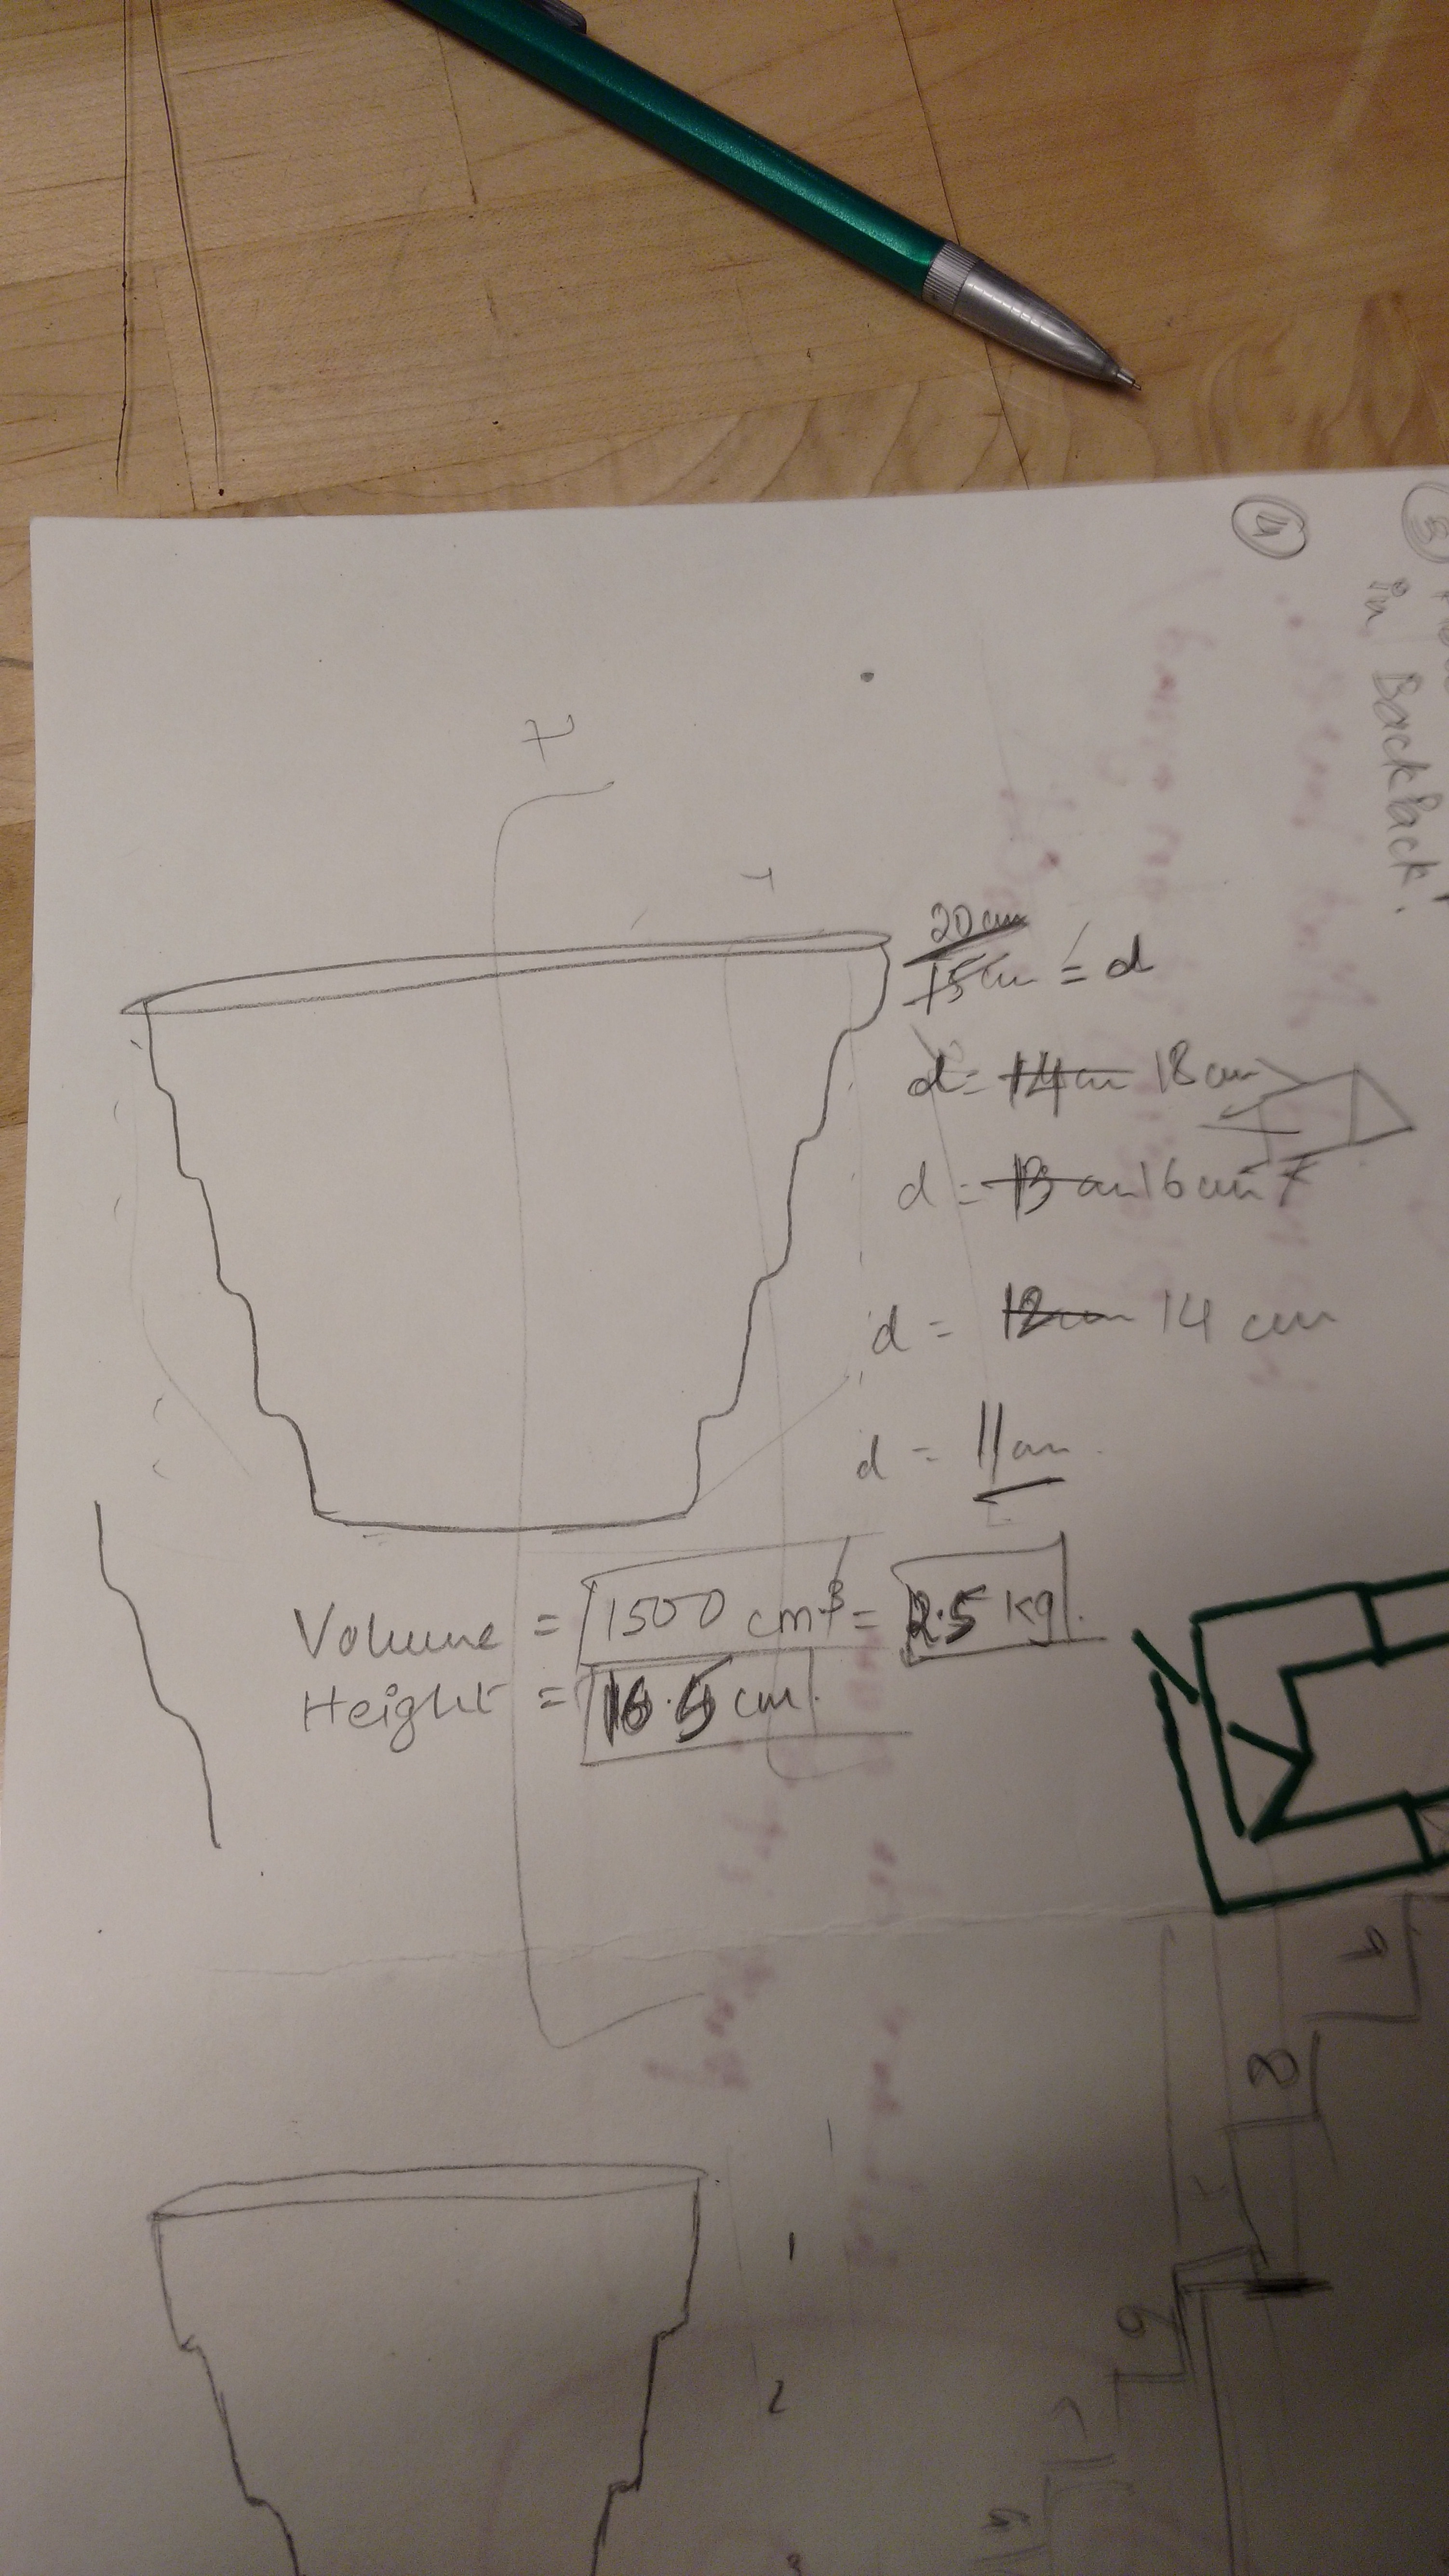 4
5
in Backpack.
20cm
15cm = d
d = 14cm 18cm
d = 13cm 16cm
d = 12cm 14 cm
d = 11cm
Volume = 1500 cm³ = 2.5 kg.
Height = 16.5 cm.
9
8
6
1
2
3